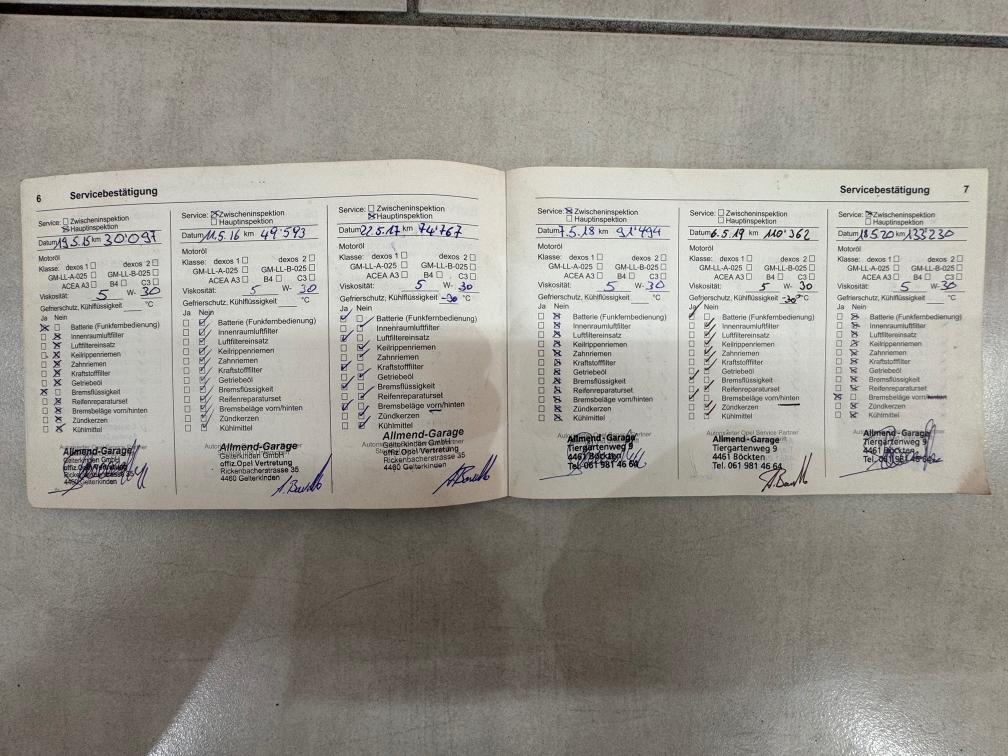 6 Servicebestätigung
Service: Zwischeninspektion
Hauptinspektion
Datum 19.5.15 km 30'097
Motoröl
Klasse: dexos 1 dexos 2
GM-LL-A-025 GM-LL-B-025
ACEA A3 B4 C3
Viskosität: 5 W- 30
Gefrierschutz, Kühlflüssigkeit °C
Ja Nein
Batterie (Funkfernbedienung)
Innenraumluftfilter
Luftfiltereinsatz
Keilrippenriemen
Zahnriemen
Kraftstofffilter
Getriebeöl
Bremsflüssigkeit
Reifenreparaturset
Bremsbeläge vorn/hinten
Zündkerzen
Kühlmittel
Allmend-Garage
Gelterkinden GmbH
offiz. Opel Vertretung
Rickenbacherstrasse 35
4460 Gelterkinden
Service: Zwischeninspektion
Hauptinspektion
Datum 11.5.16 km 49'593
Motoröl
Klasse: dexos 1 dexos 2
GM-LL-A-025 GM-LL-B-025
ACEA A3 B4 C3
Viskosität: 5 W- 30
Gefrierschutz, Kühlflüssigkeit °C
Ja Nein
Batterie (Funkfernbedienung)
Innenraumluftfilter
Luftfiltereinsatz
Keilrippenriemen
Zahnriemen
Kraftstofffilter
Getriebeöl
Bremsflüssigkeit
Reifenreparaturset
Bremsbeläge vorn/hinten
Zündkerzen
Kühlmittel
Allmend-Garage
Gelterkinden GmbH
offiz. Opel Vertretung
Rickenbacherstrasse 35
4460 Gelterkinden
Service: Zwischeninspektion
Hauptinspektion
Datum 22.5.17 km 74'767
Motoröl
Klasse: dexos 1 dexos 2
GM-LL-A-025 GM-LL-B-025
ACEA A3 B4 C3
Viskosität: 5 W- 30
Gefrierschutz, Kühlflüssigkeit -30 °C
Ja Nein
Batterie (Funkfernbedienung)
Innenraumluftfilter
Luftfiltereinsatz
Keilrippenriemen
Zahnriemen
Kraftstofffilter
Getriebeöl
Bremsflüssigkeit
Reifenreparaturset
Bremsbeläge vorn/hinten
Zündkerzen
Kühlmittel
Allmend-Garage
Gelterkinden GmbH
offiz. Opel Vertretung
Rickenbacherstrasse 35
4460 Gelterkinden
Servicebestätigung 7
Service: Zwischeninspektion
Hauptinspektion
Datum 7.5.18 km 91'494
Motoröl
Klasse: dexos 1 dexos 2
GM-LL-A-025 GM-LL-B-025
ACEA A3 B4 C3
Viskosität: 5 W- 30
Gefrierschutz, Kühlflüssigkeit °C
Ja Nein
Batterie (Funkfernbedienung)
Innenraumluftfilter
Luftfiltereinsatz
Keilrippenriemen
Zahnriemen
Kraftstofffilter
Getriebeöl
Bremsflüssigkeit
Reifenreparaturset
Bremsbeläge vorn/hinten
Zündkerzen
Kühlmittel
Allmend-Garage
Tiergartenweg 9
4461 Böckten
Tel. 061 981 46 64
Service: Zwischeninspektion
Hauptinspektion
Datum 6.5.19 km 110'362
Motoröl
Klasse: dexos 1 dexos 2
GM-LL-A-025 GM-LL-B-025
ACEA A3 B4 C3
Viskosität: 5 W- 30
Gefrierschutz, Kühlflüssigkeit -30 °C
Ja Nein
Batterie (Funkfernbedienung)
Innenraumluftfilter
Luftfiltereinsatz
Keilrippenriemen
Zahnriemen
Kraftstofffilter
Getriebeöl
Bremsflüssigkeit
Reifenreparaturset
Bremsbeläge vorn/hinten
Zündkerzen
Kühlmittel
Autorisierter Opel Service Partner
Allmend-Garage
Tiergartenweg 9
4461 Böckten
Tel. 061 981 46 64
Service: Zwischeninspektion
Hauptinspektion
Datum 18.5.20 km 133'230
Motoröl
Klasse: dexos 1 dexos 2
GM-LL-A-025 GM-LL-B-025
ACEA A3 B4 C3
Viskosität: 5 W- 30
Gefrierschutz, Kühlflüssigkeit °C
Ja Nein
Batterie (Funkfernbedienung)
Innenraumluftfilter
Luftfiltereinsatz
Keilrippenriemen
Zahnriemen
Kraftstofffilter
Getriebeöl
Bremsflüssigkeit
Reifenreparaturset
Bremsbeläge vorn/hinten
Zündkerzen
Kühlmittel
Allmend-Garage
Tiergartenweg 9
4461 Böckten
Tel. 061 981 46 64